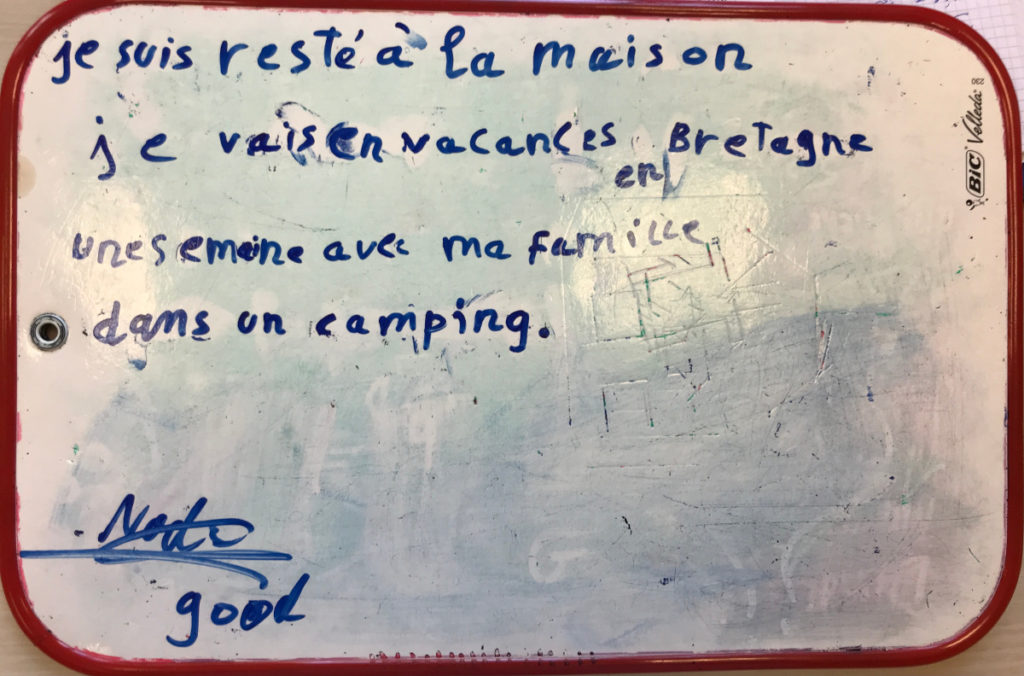 je suis resté à la maison
je vais en vacances en Bretagne
une semaine avec ma famille
dans un camping.
good
BIC Velleda